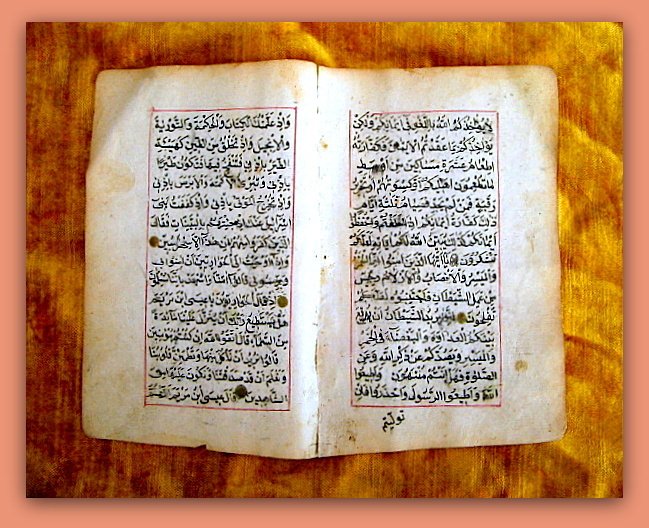 لَا يُؤَاخِذُكُمُ اللهُ بِاللَّغْوِ فِي أَيْمَانِكُمْ وَلَكِنْ
يُؤَاخِذُكُمْ بِمَا عَقَّدْتُمُ الْأَيْمَانَ فَكَفَّارَتُهُ
إِطْعَامُ عَشَرَةِ مَسَاكِينَ مِنْ أَوْسَطِ
مَا تُطْعِمُونَ أَهْلِيكُمْ أَوْ كِسْوَتُهُمْ أَوْ تَحْرِيرُ
رَقَبَةٍ فَمَنْ لَمْ يَجِدْ فَصِيَامُ ثَلٰثَةِ أَيَّامٍ
ذَلِكَ كَفَّارَةُ أَيْمَانِكُمْ إِذَا حَلَفْتُمْ وَاحْفَظُوا
أَيْمَانَكُمْ كَذَلِكَ يُبَيِّنُ اللهُ لَكُمْ آيَاتِهِ لَعَلَّكُمْ
تَشْكُرُونَ يَا أَيُّهَا الَّذِينَ آمَنُوا إِنَّمَا الْخَمْرُ
وَالْمَيْسِرُ وَالْأَنْصَابُ وَالْأَزْلَامُ رِجْسٌ
مِنْ عَمَلِ الشَّيْطَانِ فَاجْتَنِبُوهُ لَعَلَّكُمْ
تُفْلِحُونَ إِنَّمَا يُرِيدُ الشَّيْطَانُ أَنْ يُوقِعَ
بَيْنَكُمُ الْعَدَاوَةَ وَالْبَغْضَاءَ فِي الْخَمْرِ
وَالْمَيْسِرِ وَيَصُدَّكُمْ عَنْ ذِكْرِ اللهِ وَعَنِ
الصَّلٰوةِ فَهَلْ أَنْتُمْ مُنْتَهُونَ وَأَطِيعُوا
اللهَ وَأَطِيعُوا الرَّسُولَ وَاحْذَرُوا فَإِنْ
تَوَلَّيْتُمْ
وَإِذْ عَلَّمْتُكَ الْكِتَابَ وَالْحِكْمَةَ وَالتَّوْرٰيةَ
وَالْإِنْجِيلَ وَإِذْ تَخْلُقُ مِنَ الطِّينِ كَهَيْئَةِ
الطَّيْرِ بِإِذْنِي فَتَنْفُخُ فِيهَا فَتَكُونُ طَيْرًا
بِإِذْنِي وَتُبْرِئُ الْأَكْمَهَ وَالْأَبْرَصَ بِإِذْنِي
وَإِذْ تُخْرِجُ الْمَوْتَى بِإِذْنِي وَإِذْ كَفَفْتُ بَنِي
إِسْرَائِيلَ عَنْكَ إِذْ جِئْتَهُمْ بِالْبَيِّنَاتِ فَقَالَ
الَّذِينَ كَفَرُوا مِنْهُمْ إِنْ هَذَا إِلَّا سِحْرٌ مُبِينٌ
وَإِذْ أَوْحَيْتُ إِلَى الْحَوَارِيِّينَ أَنْ آمِنُوا بِي
وَبِرَسُولِي قَالُوا آمَنَّا وَاشْهَدْ بِأَنَّنَا مُسْلِمُونَ
إِذْ قَالَ الْحَوَارِيُّونَ يَا عِيسَى ابْنَ مَرْيَمَ
هَلْ يَسْتَطِيعُ رَبُّكَ أَنْ يُنَزِّلَ عَلَيْنَا مَائِدَةً
مِنَ السَّمَاءِ قَالَ اتَّقُوا اللهَ إِنْ كُنْتُمْ مُؤْمِنِينَ
قَالُوا نُرِيدُ أَنْ نَأْكُلَ مِنْهَا وَتَطْمَئِنَّ قُلُوبُنَا
وَنَعْلَمَ أَنْ قَدْ صَدَقْتَنَا وَنَكُونَ عَلَيْهَا مِنَ
الشَّاهِدِينَ قَالَ عِيسَى ابْنُ مَرْيَمَ اللَّهُمَّ